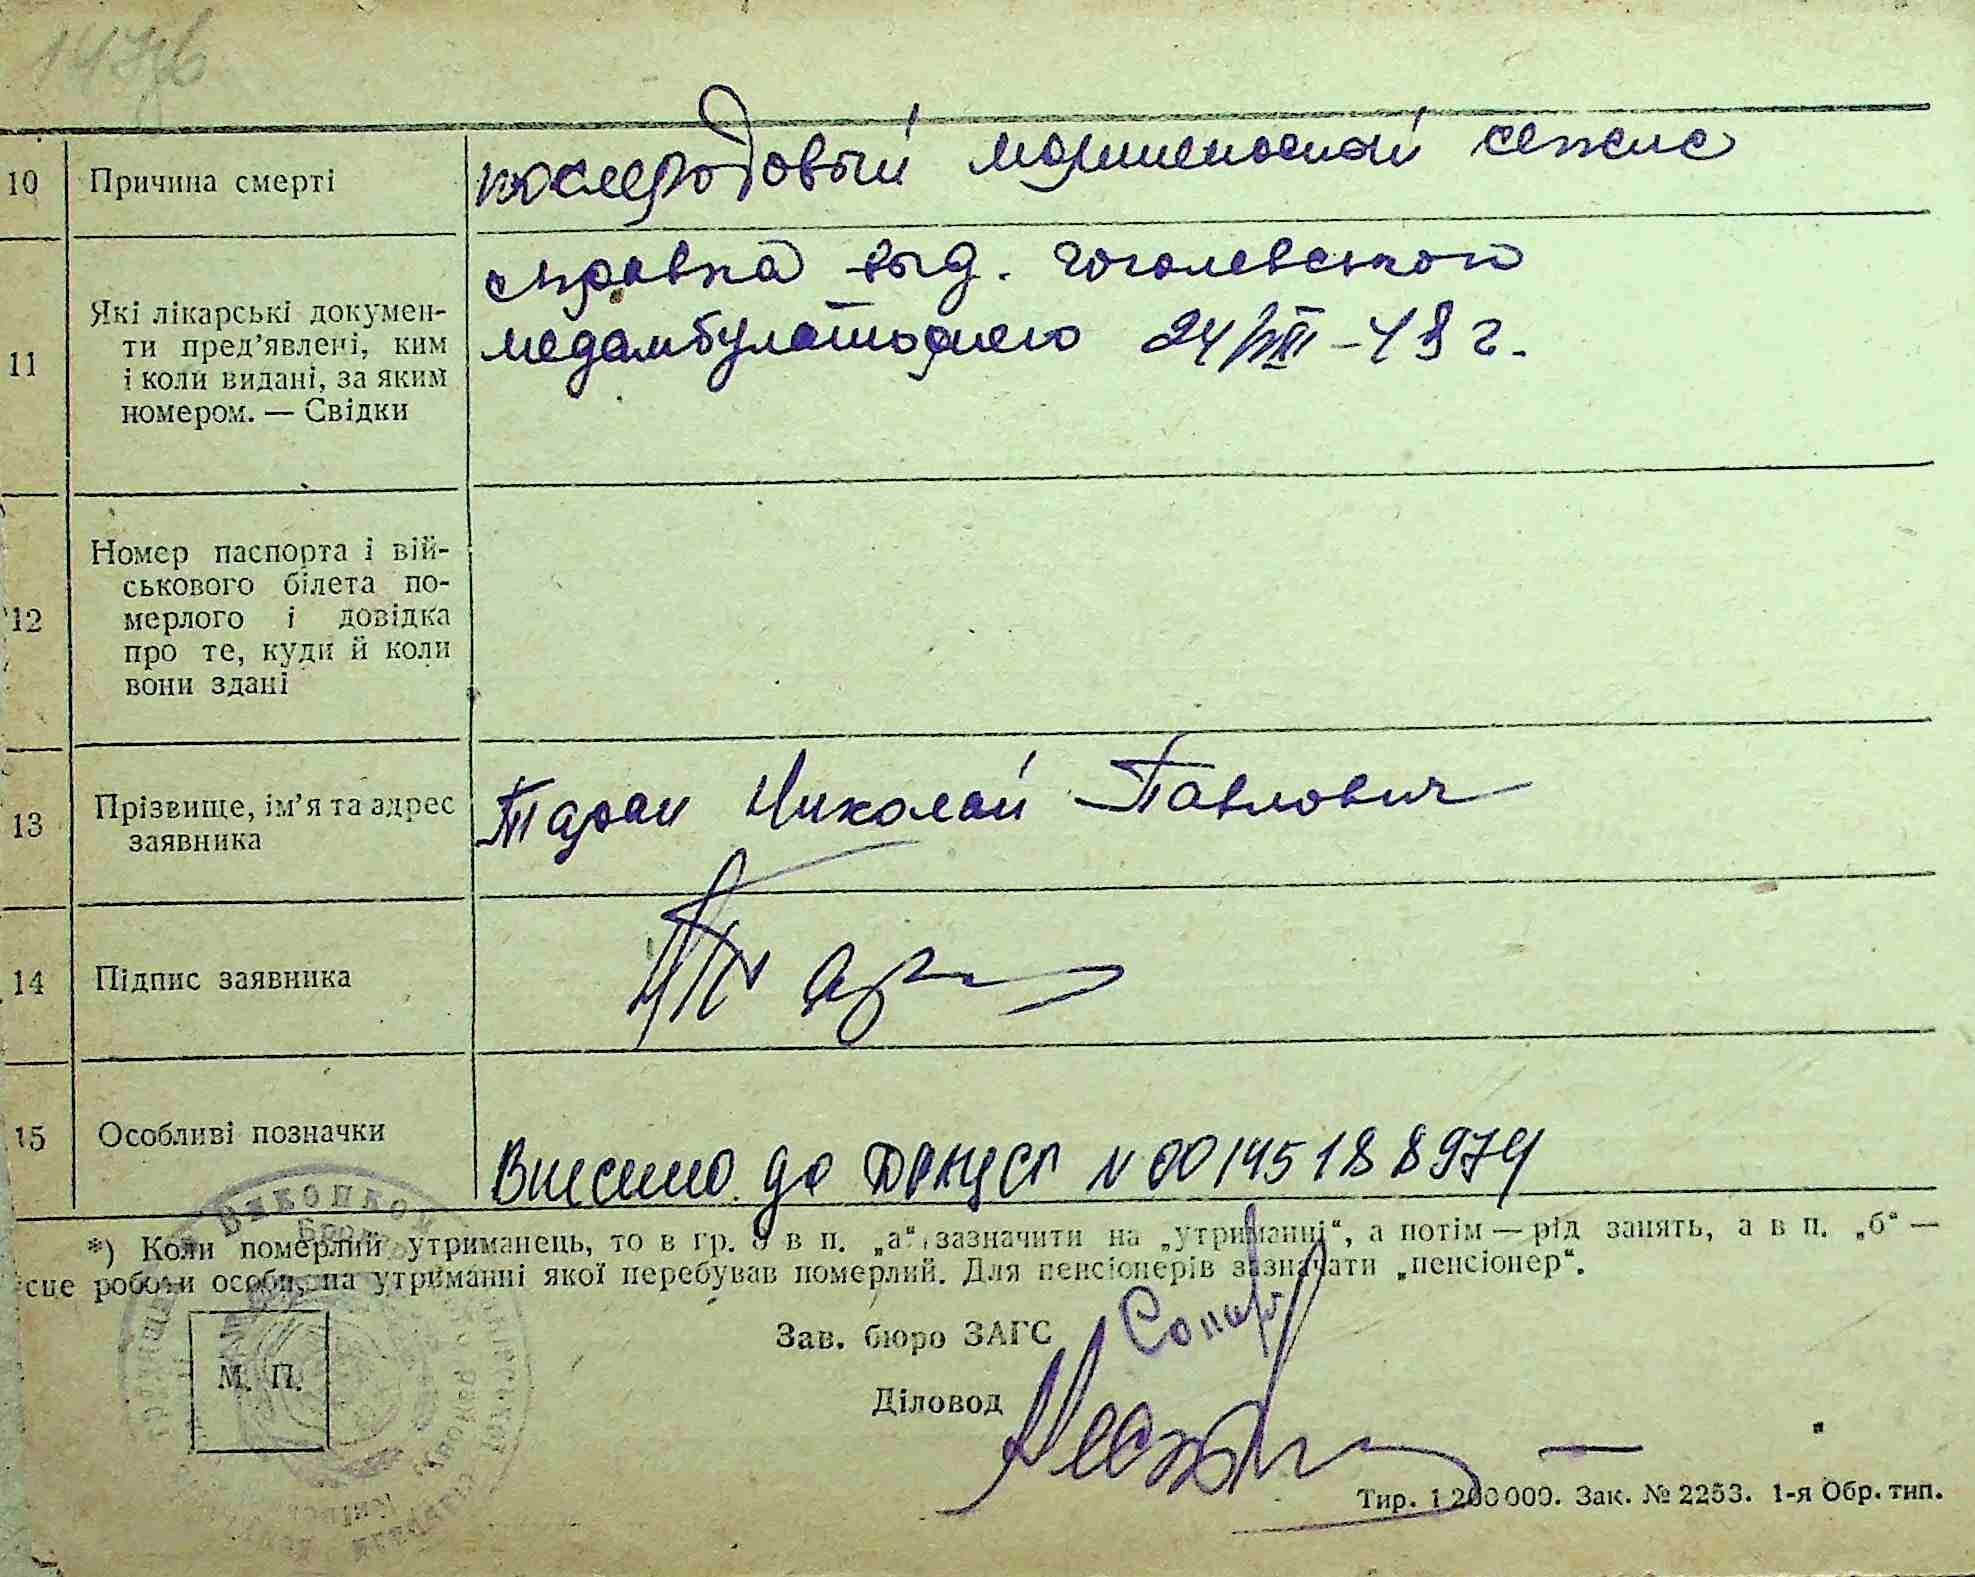 10 Причина смерті послеродовый сепсис
11 Які лікарські докумен-
ти пред'явлені, ким
і коли видані, за яким
номером. — Свідки
справка выд. гоголевской
медамбулаторией 24/VIII-49 г.
12 Номер паспорта і вій-
ськового білета по-
мерлого і довідка
про те, куди й коли
вони здані
13 Прізвище, ім'я та адрес
заявника
Таран Николай Павлович
14 Підпис заявника
15 Особливі позначки
Внесено до ДРАЦСГ N 00145188974
*) Коли померлий утриманець, то в гр. 9 в п. „а“ зазначити на „утриманні“, а потім — рід занять, а в п. „б“ —
сце роботи особи, на утриманні якої перебував померлий. Для пенсіонерів зазначати „пенсіонер“.
Зав. бюро ЗАГС
М. П.
Діловод
Тир. 1 200 000. Зак. № 2253. 1-я Обр. тип.